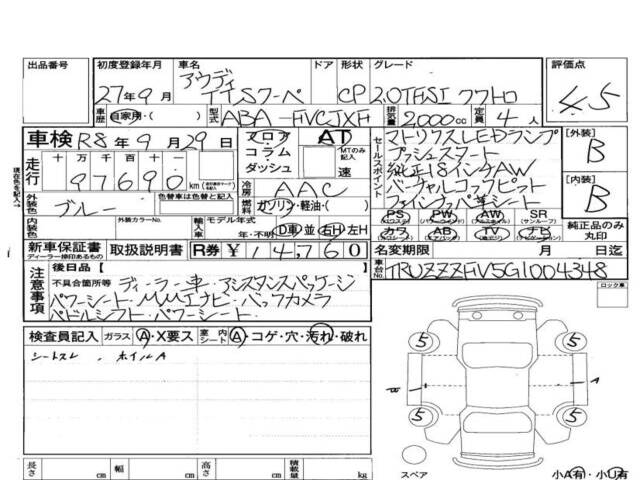 出品番号
初度登録年月 27年9月
車名 アウディ TTSクーペ
ドア 形状 CP
グレード 2.0TFSI クワトロ
評価点 4.5
車歴 自家用・( )
型式 ABA-FVCJXF
排気量 2000cc
定員 4人
車検 R8年9月29日
フロア AT
コラム
ダッシュ 速
MTのみ記入
セールスポイント
マトリクスLEDランプ
プッシュスタート
純正18インチAW
バーチャルコックピット
ファインナッパ革シート
[外装] B
[内装] B
走行 十万千百十
97690 km
冷房 AAC
外装色 ブルー
色替車は色替と記入
燃料 ガソリン・軽油・( )
内装色
外装カラーNo.
輸入車 モデル年式 年・不明
D車 並 右H 左H
PS PW AW SR
(パワーウィンド) (アルミホイール) (サンルーフ)
カワ AB TV ナビ
純正品のみ丸印
新車保証書
ディーラー捺印あるもの
取扱説明書
R券 ¥14,760
名変期限 月 日迄
車台No. TRUZZZFV5G1004348
注意事項
後日品[ ]
不具合箇所等 ディーラー車・アシスタンスパッケージ
パワーシート・MMIナビ・バックカメラ
パドルシフト・パワーシート・
ロック車
検査員記入 ガラス A・X要ス 室内シート A・コゲ・穴・汚れ・破れ
シートスレ・ホイルA
5 5
A
5 5
スペア
小A有・小U有
長さ cm 幅 cm 高さ cm 積載量 kg